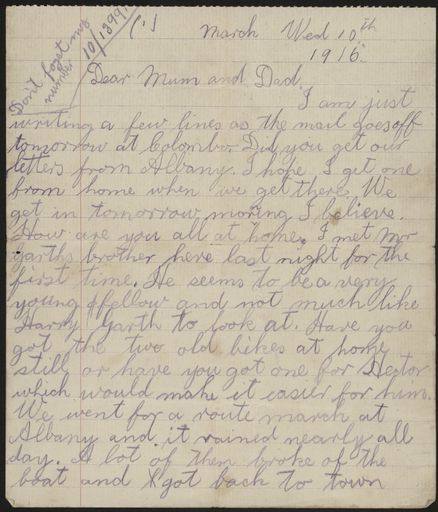 Don't forget my
number
10/1399
(1)
March Wed 10th
1916.
Dear Mum and Dad.
I am just
writing a few lines as the mail goes off
tomorrow at Colombo. Did you get our
letters from Albany. I hope I get one
from home when we get there. We
get in tomorrow moring I believe.
How are you all at home. I met Mr
Garths brother here last night for the
first time. He seems to be a very
young fellow and not much like
Harry Garth to look at. Have you
got the two old bikes at home
still or have you got one for Hector
which would make it easier for him.
We went for a route march at
Albany and it rained nearly all
day. A lot of them broke of the
boat and got back to town